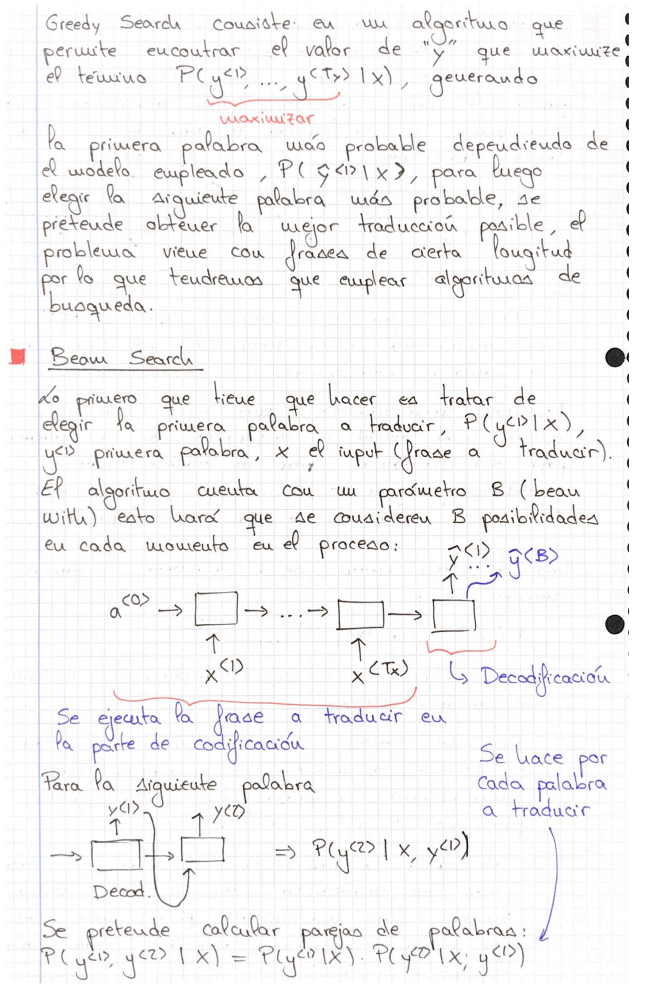 Greedy Search consiste en un algoritmo que
permite encontrar el valor de "y" que maximize
el término P(y<1>, ..., y<Ty> | x), generando
maximizar
la primera palabra más probable dependiendo de
el modelo empleado, P(ŷ<1> | x), para luego
elegir la siguiente palabra más probable, se
pretende obtener la mejor traducción posible, el
problema viene con frases de cierta longitud
por lo que tendremos que emplear algoritmos de
busqueda.
Beam Search
Lo primero que tiene que hacer es tratar de
elegir la primera palabra a traducir, P(y<1> | x),
y<1> primera palabra, x el input (frase a traducir).
El algoritmo cuenta con un parámetro B (beau
with) esto hará que se consideren B posibilidades
en cada momento en el proceso:
ŷ<1> ... ŷ<B>
a<0> → → ... → →
x<1> x<Tx>
↳ Decodificación
Se ejecuta la frase a traducir en
la parte de codificación
Se hace por
cada palabra
a traducir
Para la siguiente palabra
y<1> y<2>
⇒ P(y<2> | x, y<1>)
Decod.
Se pretende calcular parejas de palabras:
P(y<1>, y<2> | x) = P(y<1> | x) · P(y<2> | x; y<1>)